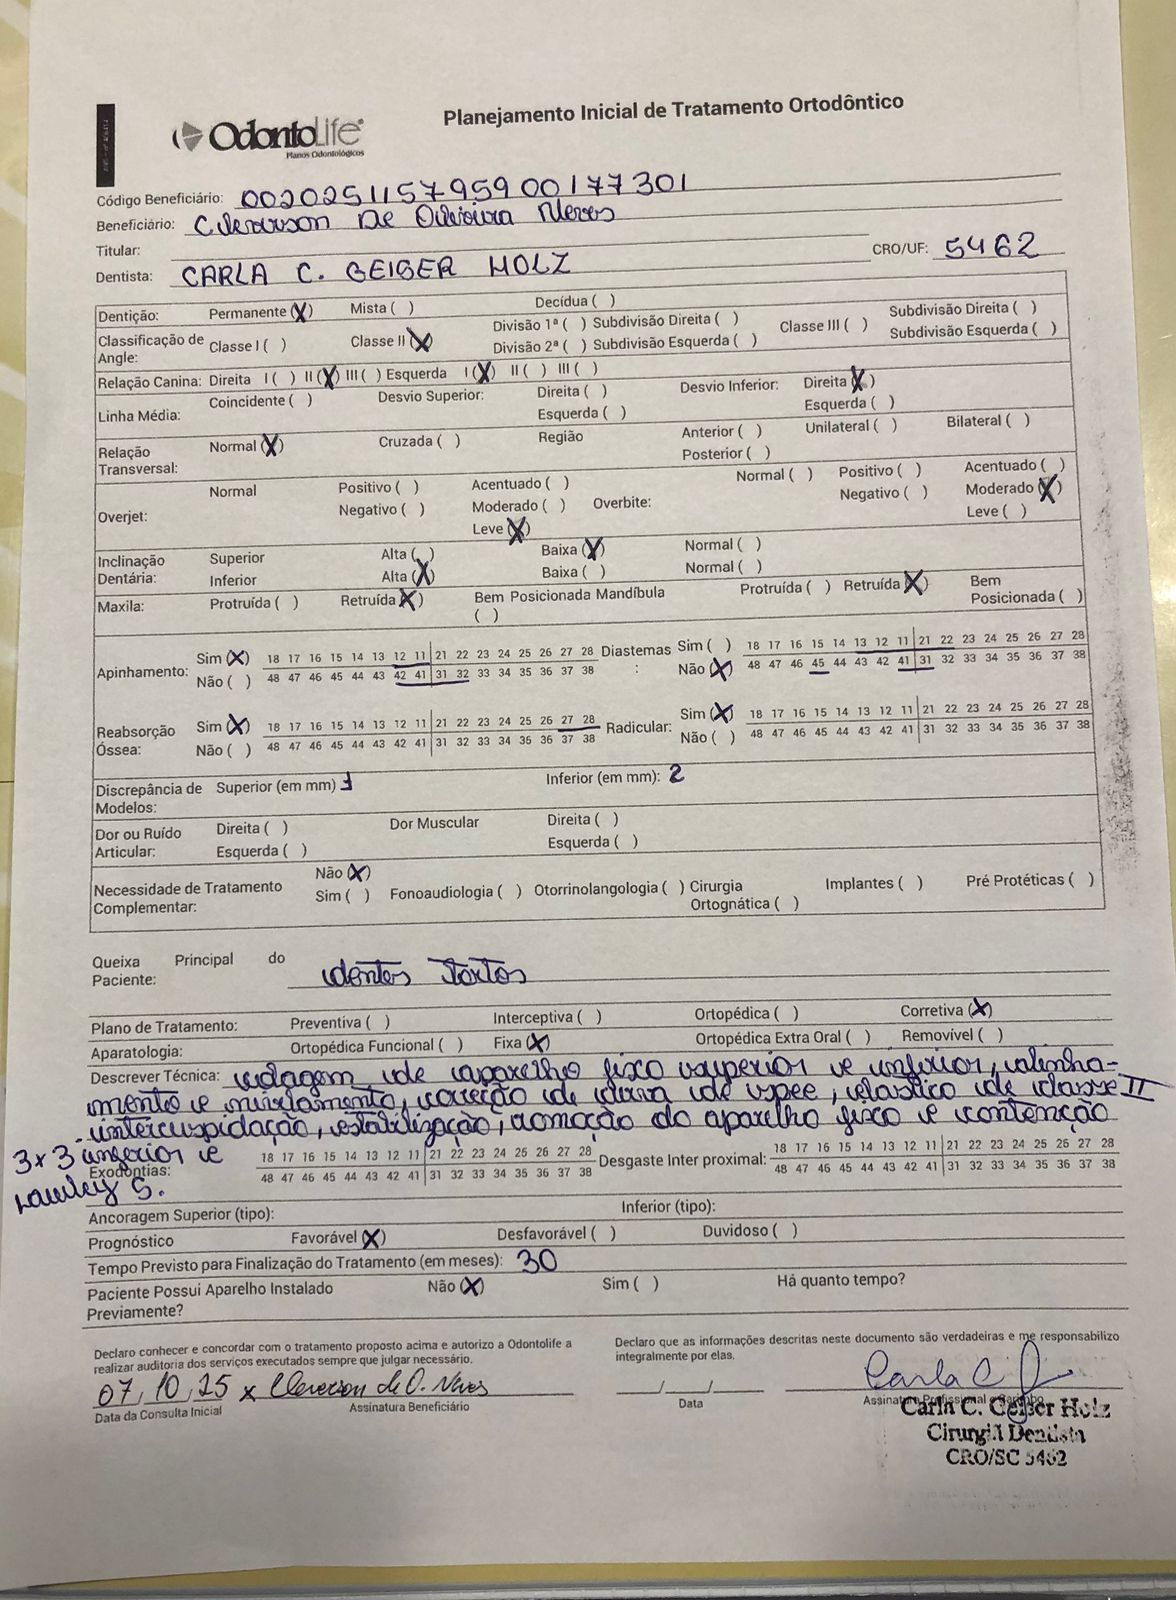 OdontoLife
Planos Odontológicos
Planejamento Inicial de Tratamento Ortodôntico
Código Beneficiário: 002025115795900177301
Beneficiário: Cleverson De Oliveira Neves
Titular:
CRO/UF: 5462
Dentista: CARLA C. GEISER HOLZ
Dentição: Permanente (X) Mista ( ) Decídua ( )
Classificação de Angle: Classe I ( ) Classe II (X) Divisão 1ª ( ) Subdivisão Direita ( ) Classe III ( ) Subdivisão Direita ( )
Divisão 2ª ( ) Subdivisão Esquerda ( ) Subdivisão Esquerda ( )
Relação Canina: Direita I ( ) II (X) III ( ) Esquerda I (X) II ( ) III ( )
Linha Média: Coincidente ( ) Desvio Superior: Direita ( ) Desvio Inferior: Direita (X)
Esquerda ( ) Esquerda ( )
Relação Transversal: Normal (X) Cruzada ( ) Região Anterior ( ) Unilateral ( ) Bilateral ( )
Posterior ( )
Overjet: Normal Positivo ( ) Acentuado ( ) Overbite: Normal ( ) Positivo ( ) Acentuado ( )
Negativo ( ) Moderado ( ) Negativo ( ) Moderado (X)
Leve (X) Leve ( )
Inclinação Dentária: Superior Alta ( ) Baixa (X) Normal ( )
Inferior Alta (X) Baixa ( ) Normal ( )
Maxila: Protruída ( ) Retruída (X) Bem Posicionada ( ) Mandíbula Protruída ( ) Retruída (X) Bem Posicionada ( )
Apinhamento: Sim (X) 18 17 16 15 14 13 12 11 21 22 23 24 25 26 27 28 Diastemas: Sim ( ) 18 17 16 15 14 13 12 11 21 22 23 24 25 26 27 28
Não ( ) 48 47 46 45 44 43 42 41 31 32 33 34 35 36 37 38 Não (X) 48 47 46 45 44 43 42 41 31 32 33 34 35 36 37 38
Reabsorção Óssea: Sim (X) 18 17 16 15 14 13 12 11 21 22 23 24 25 26 27 28 Radicular: Sim (X) 18 17 16 15 14 13 12 11 21 22 23 24 25 26 27 28
Não ( ) 48 47 46 45 44 43 42 41 31 32 33 34 35 36 37 38 Não ( ) 48 47 46 45 44 43 42 41 31 32 33 34 35 36 37 38
Discrepância de Modelos: Superior (em mm) 1 Inferior (em mm): 2
Dor ou Ruído Articular: Direita ( ) Dor Muscular Direita ( )
Esquerda ( ) Esquerda ( )
Necessidade de Tratamento Complementar: Não (X)
Sim ( ) Fonoaudiologia ( ) Otorrinolangologia ( ) Cirurgia Ortognática ( ) Implantes ( ) Pré Protéticas ( )
Queixa Principal do Paciente: dentes tortos
Plano de Tratamento: Preventiva ( ) Interceptiva ( ) Ortopédica ( ) Corretiva (X)
Aparatologia: Ortopédica Funcional ( ) Fixa (X) Ortopédica Extra Oral ( ) Removível ( )
Descrever Técnica: colagem de aparelho fixo superior e inferior, alinha-
mento e nivelamento, correção de curva de spee, elástico de classe II
intercuspidação, estabilização, remoção do aparelho fixo e contenção
3x3 inferior e
Hawley S.
Exodontias: 18 17 16 15 14 13 12 11 21 22 23 24 25 26 27 28 Desgaste Inter proximal: 18 17 16 15 14 13 12 11 21 22 23 24 25 26 27 28
48 47 46 45 44 43 42 41 31 32 33 34 35 36 37 38 48 47 46 45 44 43 42 41 31 32 33 34 35 36 37 38
Ancoragem Superior (tipo): Inferior (tipo):
Prognóstico Favorável (X) Desfavorável ( ) Duvidoso ( )
Tempo Previsto para Finalização do Tratamento (em meses): 30
Paciente Possui Aparelho Instalado Previamente? Não (X) Sim ( ) Há quanto tempo?
Declaro conhecer e concordar com o tratamento proposto acima e autorizo a Odontolife a
realizar auditoria dos serviços executados sempre que julgar necessário.
Declaro que as informações descritas neste documento são verdadeiras e me responsabilizo
integralmente por elas.
07/10/25 x Cleverson de O. Neves
Data da Consulta Inicial Assinatura Beneficiário
__/__/__ Carla C.
Data Assinatura Profissional e Carimbo
Carla C. Geiser Holz
Cirurgiã Dentista
CRO/SC 5462